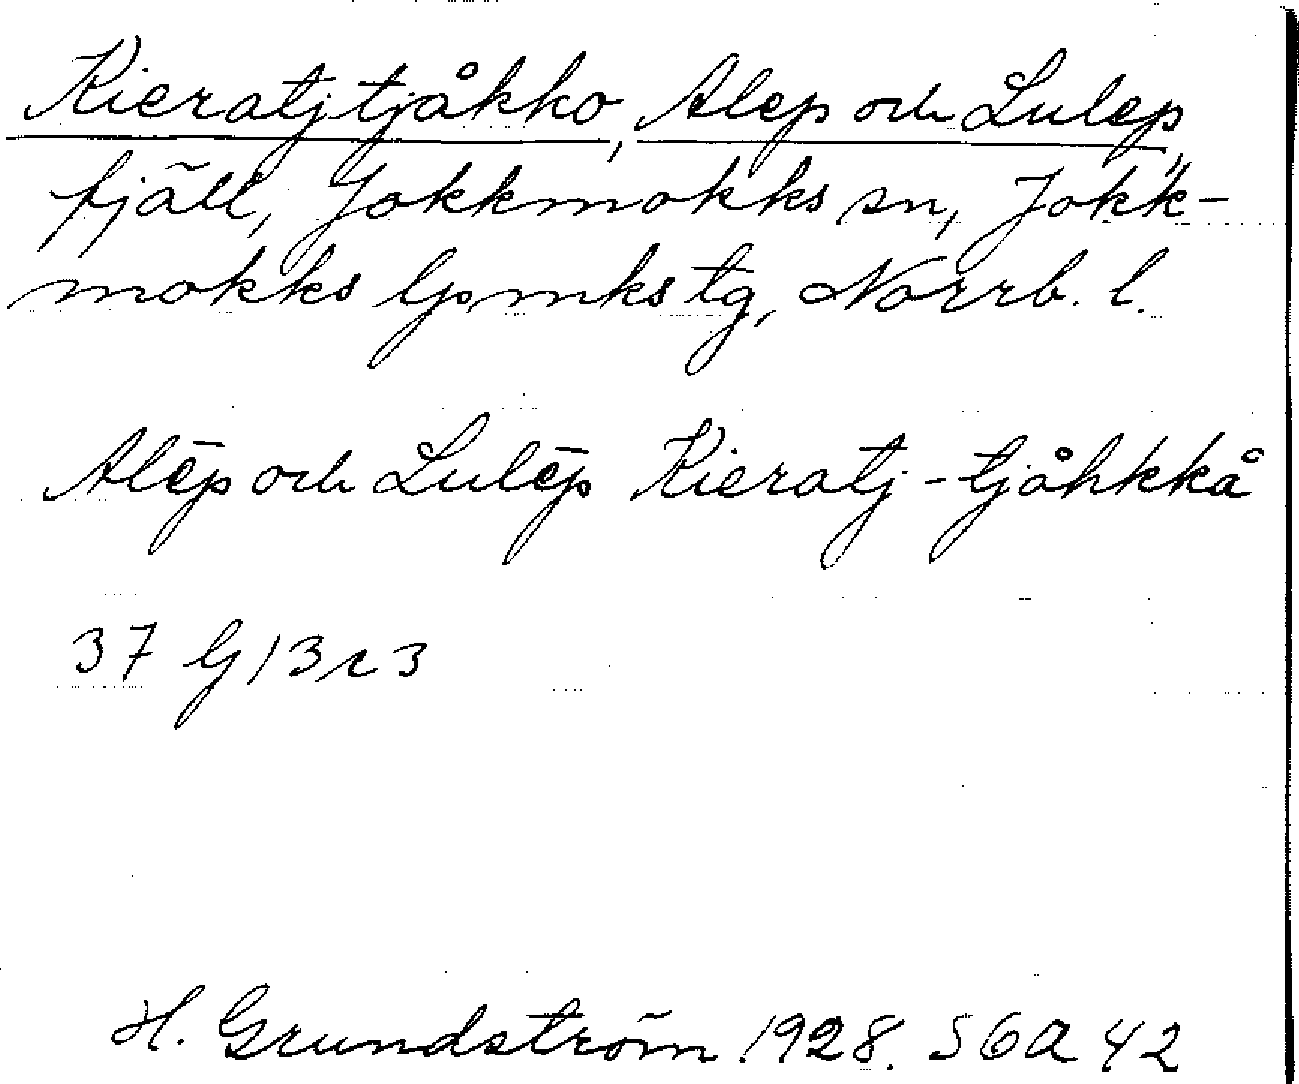 Kieratjtjåkko, Alep och Lulep,
fjäll, Jokkmokks sn, Jokk-
mokks lpmks tg, Norrb. l.
Alēp och Lulēp Kieratj-tjåhkkå
37 G 13r3
H. Grundström 1928. S6a 42